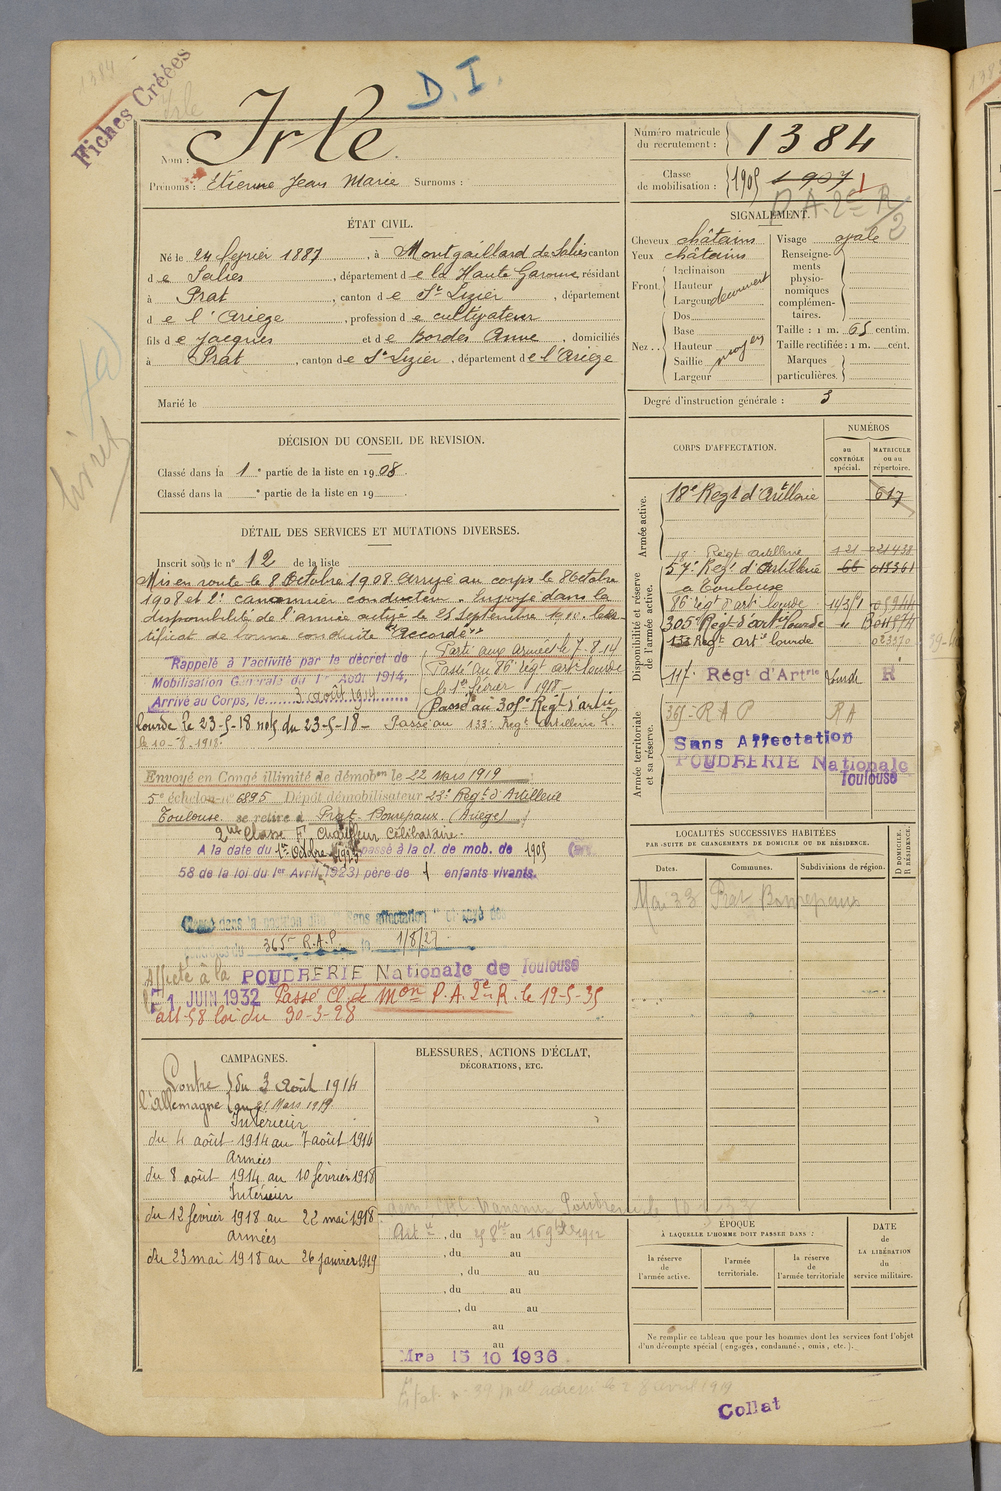 1384
Fiches Créées
Irle
D. I.
Nom : Irle
Prénoms : Etienne Jean Marie Surnoms :
Numéro matricule du recrutement : 1384
Classe de mobilisation : 1905 1907
P. A. 2e R/2
ÉTAT CIVIL.
Né le 24 février 1887, à Montgaillard de Salies canton
de Salies, département de la Haute Garonne, résidant
à Prat, canton de St Lizier, département
de l'Ariège, profession de cultivateur
fils de Jacques et de Bordes Anne, domiciliés
à Prat, canton de St Lizier, département de l'Ariège
Marié le
SIGNALEMENT.
Cheveux châtains
Yeux châtains
Front
Inclinaison
Hauteur
Largeur découvert
Nez
Dos
Base
Hauteur moyen
Saillie
Largeur
Visage ovale
Renseignements physionomiques complémentaires.
Taille : 1 m. 65 centim.
Taille rectifiée : 1 m. cent.
Marques particulières.
Degré d'instruction générale : 3
livret
DÉCISION DU CONSEIL DE REVISION.
Classé dans la 1e partie de la liste en 1908.
Classé dans la e partie de la liste en 19
DÉTAIL DES SERVICES ET MUTATIONS DIVERSES.
Inscrit sous le n° 12 de la liste
Mis en route le 8 Octobre 1908. Arrivé au corps le 8 Octobre
1908 et 2e canonnier conducteur. Envoyé dans la
disponibilité de l'armée active le 25 Septembre 1910. Certificat de bonne conduite "Accordé"
Rappelé à l'activité par le décret de
Mobilisation Générale du 1er Août 1914,
Arrivé au Corps, le 3 août 1914
Parti aux armées le 7.8.14
Passé au 86e régt art lourde
le 1er février 1918
Passé au 305e Régt d'artie
lourde le 23-5-18 du 23-5-18 - Passé au 133e Regt Artillerie L.
le 10-8-1918.
Envoyé en Congé illimité de démobon le 22 Mars 1919
5e échelon n° 6895 Dépôt démobilisateur 23e Régt d'Artillerie
Toulouse. se retire à Prat-Bonrepaux. (Ariège)
2me Classe F. Chauffeur Célibataire.
A la date du 1er Octbre 1923 passé à la cl. de mob. de 1905 (art.
58 de la loi du 1er Avril 1923) père de 1 enfants vivants.
dans la position dite "Sans affectation"
365e R.A.P. le 1/8/27
Affecté à la POUDRERIE Nationale de Toulouse
le 1 JUIN 1932 Passé Cl. de Mon P.A. 2e R. le 12-5-35
art-58 loi du 30-3-28
CORPS D'AFFECTATION.
NUMÉROS
au CONTRÔLE spécial.
MATRICULE ou au répertoire.
Armée active.
18e Regt d'Artillerie 617
Disponibilité et réserve de l'armée active.
Régt Artillerie 121 021438
57e Regt d'Artillerie 66
à Toulouse
86e régt d'art lourde
305e Régt d'artie lourde
133 Regt artie lourde
117e Régt d'Artrie R
Armée territoriale et sa réserve.
365e R A P R A
Sans Affectation
POUDRERIE Nationale
Toulouse
LOCALITÉS SUCCESSIVES HABITÉES
PAR SUITE DE CHANGEMENTS DE DOMICILE OU DE RÉSIDENCE.
Dates.
Communes.
Subdivisions de région.
D DOMICILE. R RÉSIDENCE.
Mai 33 Prat Bonrepaux
CAMPAGNES.
Contre l'Allemagne
du 3 Août 1914
au 21 Mars 1919
Intérieur
du 4 août 1914 au 7 août 1914
Armées
du 8 août 1914 au 10 février 1918
Intérieur
du 12 février 1918 au 22 mai 1918
armées
du 23 mai 1918 au 26 janvier 1919
BLESSURES, ACTIONS D'ÉCLAT,
DÉCORATIONS, ETC.
, du au
, du au
, du au
, du au
, du au
au
au
Mra 13 10 1936
ÉPOQUE
À LAQUELLE L'HOMME DOIT PASSER DANS :
la réserve de l'armée active.
l'armée territoriale.
la réserve de l'armée territoriale
DATE DE LA LIBÉRATION du service militaire.
Ne remplir ce tableau que pour les hommes dont les services font l'objet
d'un décompte spécial (engagés, condamnés, omis, etc.).
Collat